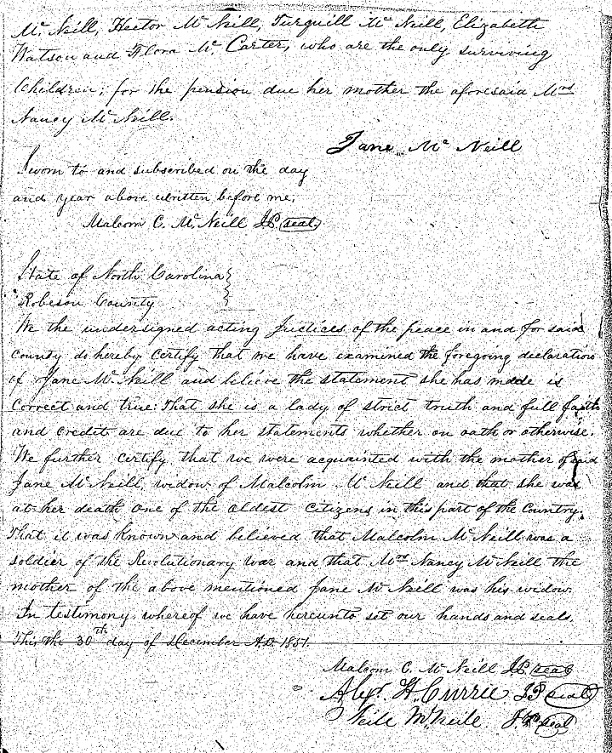 Mc Neill, Hector Mc Neill, Turquill Mc Neill, Elizabeth
Watson and Flora Mc Carter, who are the only surviving
Children; for the pension due her mother the aforesaid Mrs
Nancy Mc Neill.
Jane Mc Neill
Sworn to and subscribed on the day
and year above written before me,
Malcom C. Mc Neill J.P. (seal)
State of North Carolina }
Robeson County }
We the undersigned acting Justices of the peace in and for said
county do hereby certify that we have examined the foregoing declaration
of Jane Mc Neill and believe the statement she has made is
correct and true. That she is a lady of strict truth and full faith
and credit are due to her statements whether on oath or otherwise.
We further certify that we were acquainted with the mother of said
Jane Mc Neill, widow of Malcolm Mc Neill and that she was
at her death one of the oldest citizens in this part of the Country.
That it was known and believed that Malcolm Mc Neill was a
soldier of the Revolutionary War and that Mrs Nancy Mc Neill the
mother of the above mentioned Jane Mc Neill was his widow.
In testimony whereof we have hereunto set our hands and seals.
This the 30th day of December A.D. 1851.
Malcom C. Mc Neill J.P. (seal)
Alexr. H. Currie J.P. (seal)
Neill McNeill J.P. (seal)